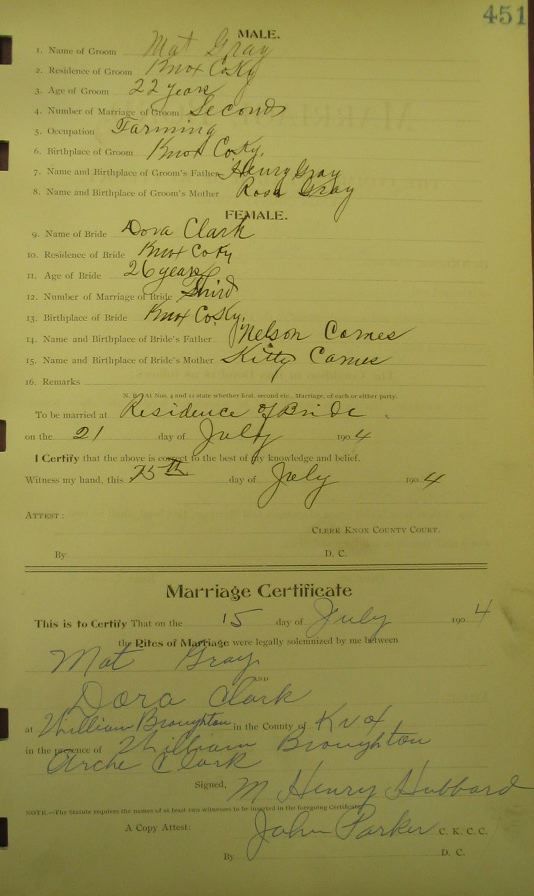 451
MALE.
1. Name of Groom Mat Gray
2. Residence of Groom Knox Co Ky
3. Age of Groom 22 years
4. Number of Marriage of Groom Second
5. Occupation Farming
6. Birthplace of Groom Knox Co Ky.
7. Name and Birthplace of Groom's Father Henry Gray
8. Name and Birthplace of Groom's Mother Rosa Gray
FEMALE.
9. Name of Bride Dora Clark
10. Residence of Bride Knox Co Ky
11. Age of Bride 26 years
12. Number of Marriage of Bride Third
13. Birthplace of Bride Knox Co Ky.
14. Name and Birthplace of Bride's Father Nelson Carnes
15. Name and Birthplace of Bride's Mother Kitty Carnes
16. Remarks
N. B. At Nos. 4 and 12 state whether first, second etc., Marriage, of each or either party.
To be married at Residence of Bride.
on the 21 day of July 1904
I Certify that the above is correct to the best of my knowledge and belief.
Witness my hand, this 15th day of July 1904
ATTEST:
CLERK KNOX COUNTY COURT.
By D. C.
Marriage Certificate
This is to Certify That on the 15 day of July 1904
the Rites of Marriage were legally solemnized by me between
Mat Gray
AND
Dora Clark
at William Broughton in the County of Knox
in the presence of William Broughton
Arche Clark
Signed, M Henry Hubbard
NOTE.—The Statute requires the names of at least two witnesses to be inserted in the foregoing Certificate
A Copy Attest: John Parker C. K. C. C.
By D. C.